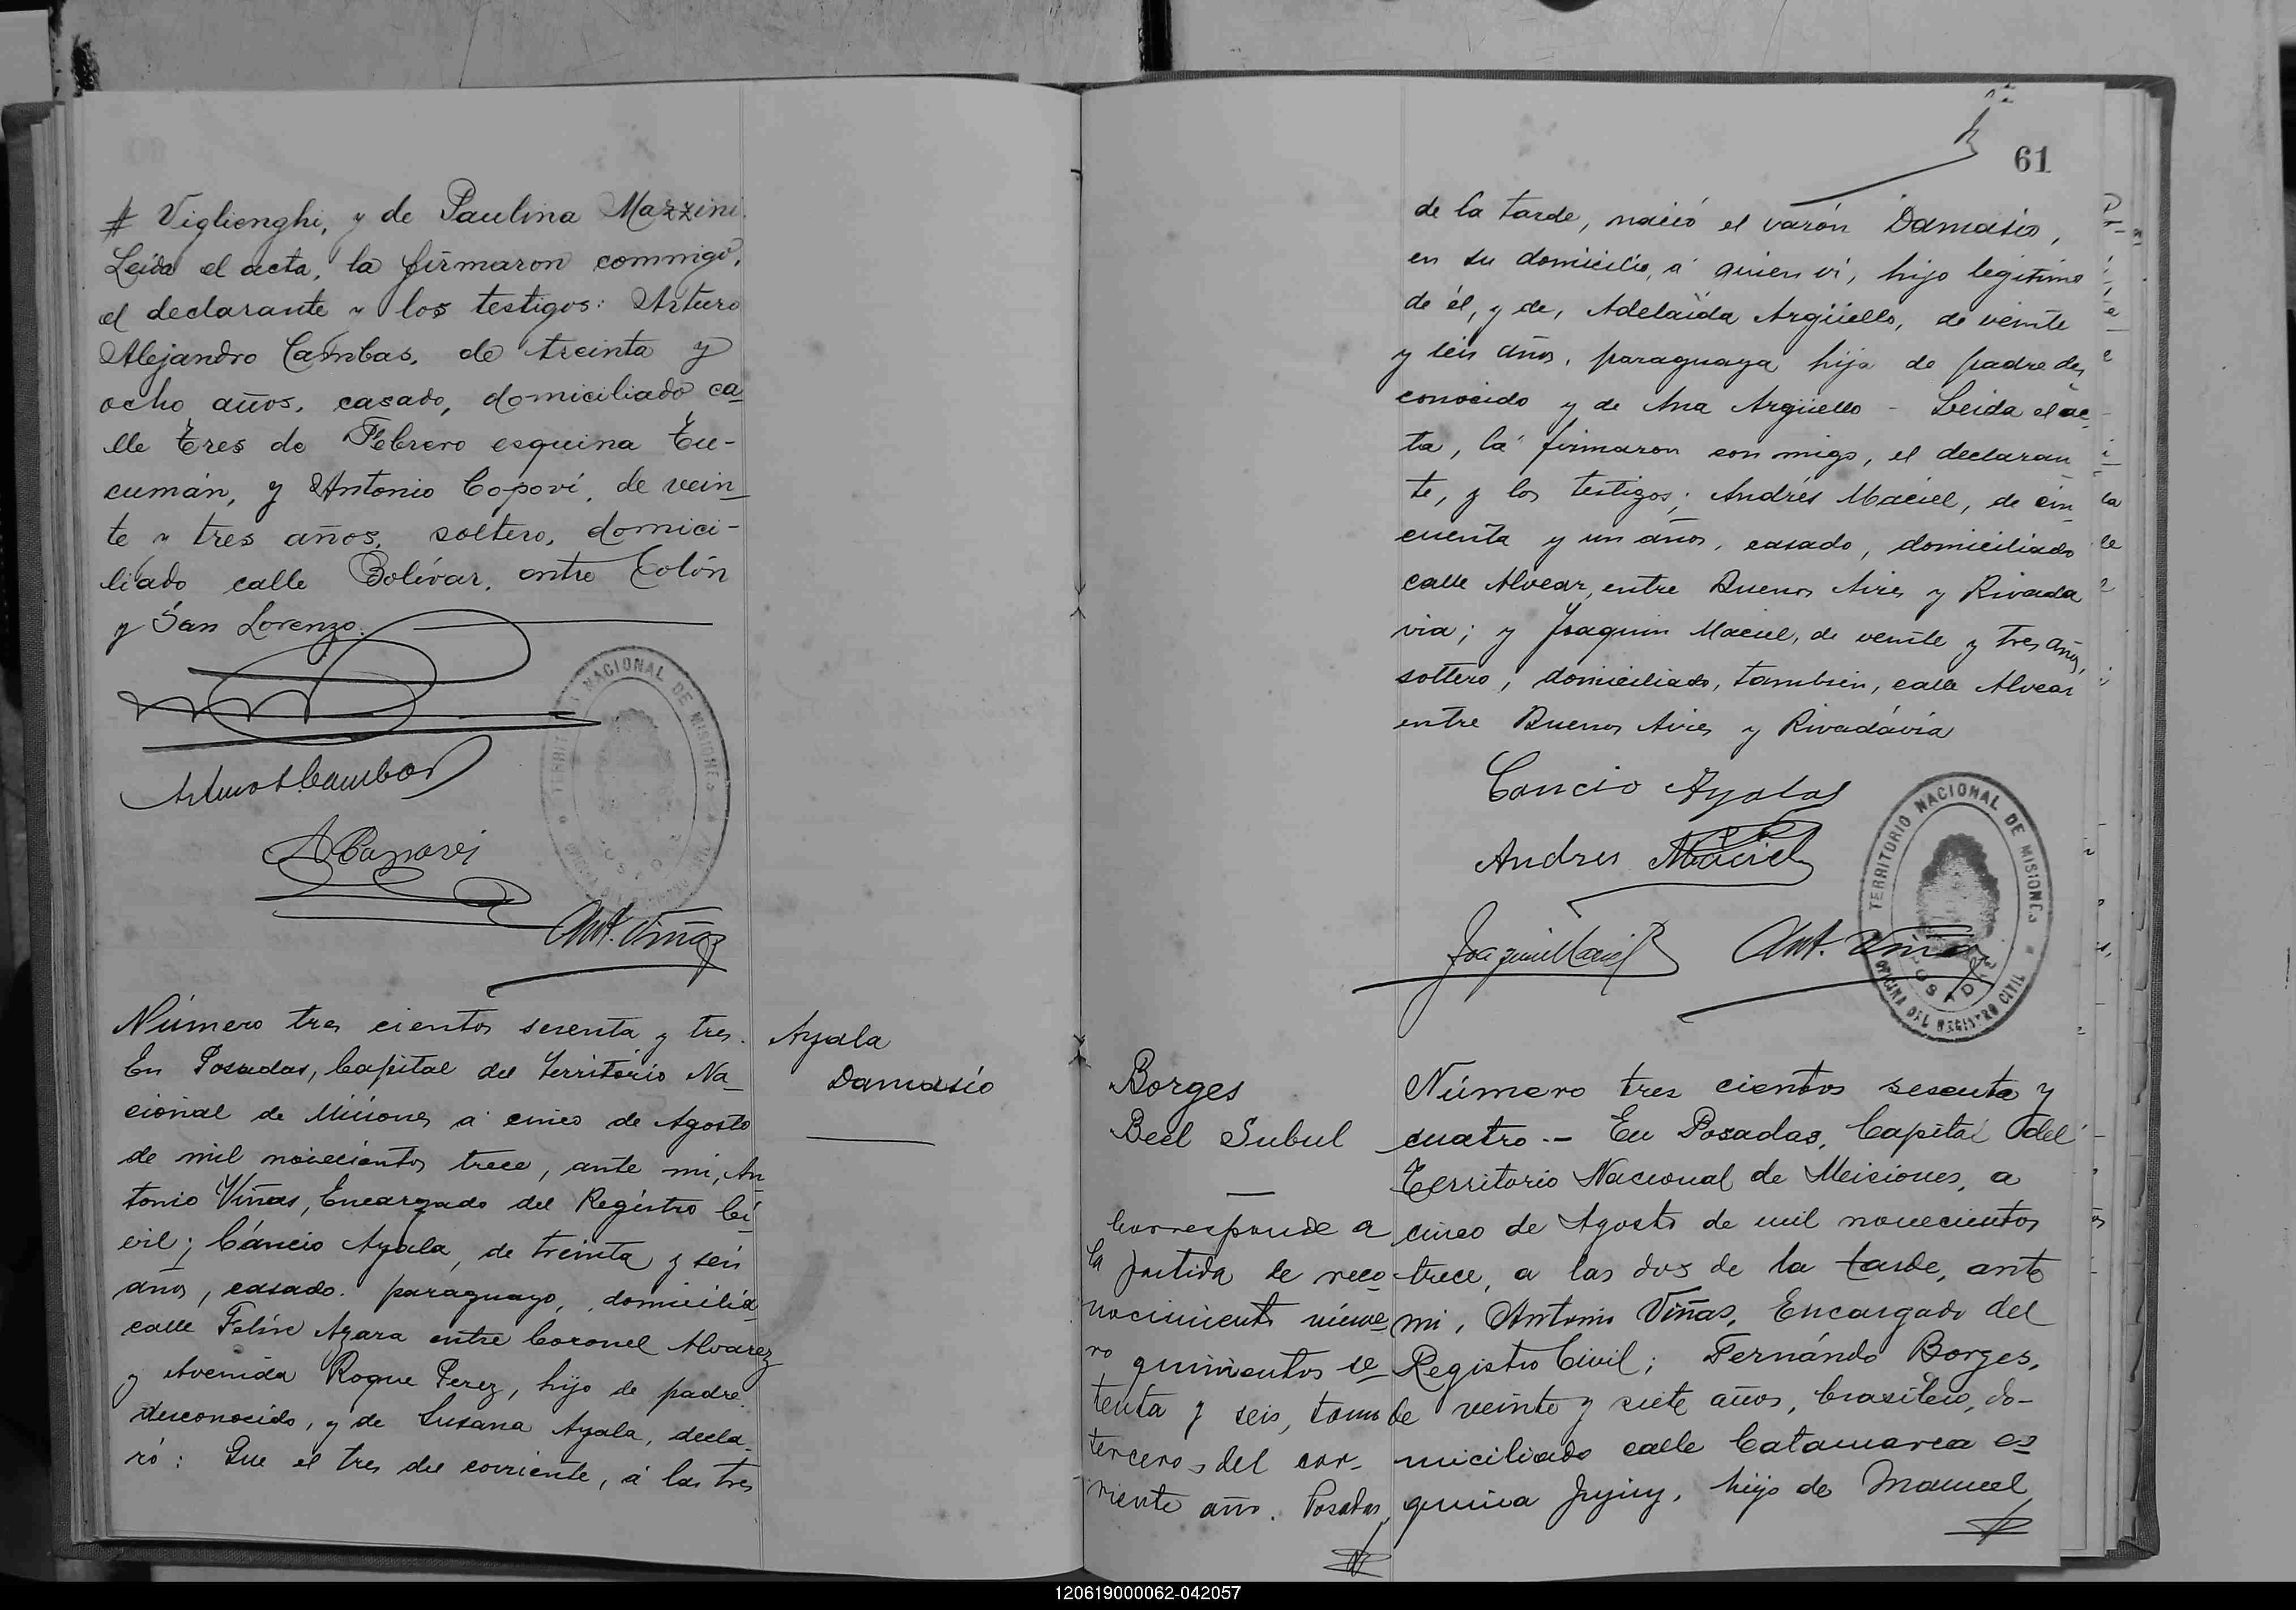 # Viglienghi, y de Paulina Mazzini.
Leída el acta, la firmaron conmigo,
el declarante y los testigos: Arturo
Alejandro Cambas, de treinta y
ocho años, casado, domiciliado ca-
lle Tres de Febrero esquina Tu-
cumán, y Antonio Copoví, de vein-
te y tres años, soltero, domici-
liado calle Bolívar, entre Colón
y San Lorenzo.
TERRITORIO NACIONAL DE MISIONES
Arturo A. Cambas
Ant. Viñas
Número tres cientos sesenta y tres.
En Posadas, Capital del Territorio Na-
cional de Misiones a cinco de Agosto
de mil novecientos trece, ante mi, An-
tonio Viñas, Encargado del Registro Ci-
vil; Cáncio Ayala, de treinta y seis
años, casado. paraguayo, domicilia
calle Felix Azara entre Coronel Alvarez
y Avenida Roque Perez, hijo de padre
desconocido, y de Susana Ayala, decla-
ró: Que el tres del corriente, á las tres
Ayala
Damasio
61
de la tarde, nació el varón Damasio,
en su domicilio, á quien vi, hijo legitimo
de él, y de, Adelaida Argüello, de veinte
y seis años, paraguaya hija de padre des
conocido y de Ana Argüello - Leida el ac-
ta, la firmaron con migo, el declaran
te, y los testigos; Andrés Maciel, de cin
cuenta y un años, casado, domiciliado
calle Alvear, entre Buenos Aires y Rivada
via; y Joaquin Maciel, de veinte y tres años,
soltero, domiciliado, tambien, calle Alvear
entre Buenos Aires y Rivadávia
Cancio Ayala
Andres Maciel
Joaquin Maciel
Ant. Viñas
TERRITORIO NACIONAL DE MISIONES
POSADAS
OFICINA DEL REGISTRO CIVIL
Borges
Beel Subul
Corresponde a
la partida de reco-
nocimiento núme-
ro quinientos se-
tenta y seis, tomo
tercero, del cor-
riente año. Posadas,
Número tres cientos sesenta y
cuatro.- En Posadas, Capital del
Territorio Nacional de Meisiones, a
cinco de Agosto de mil novecientos
trece, a las dos de la tarde, ante
mi, Antonio Viñas, Encargado del
Registro Civil; Fernándo Borges,
de veinte y siete años, brasilero, do-
miciliado calle Catamarca es-
quina Jujuy, hijo de Manuel
120619000062-042057